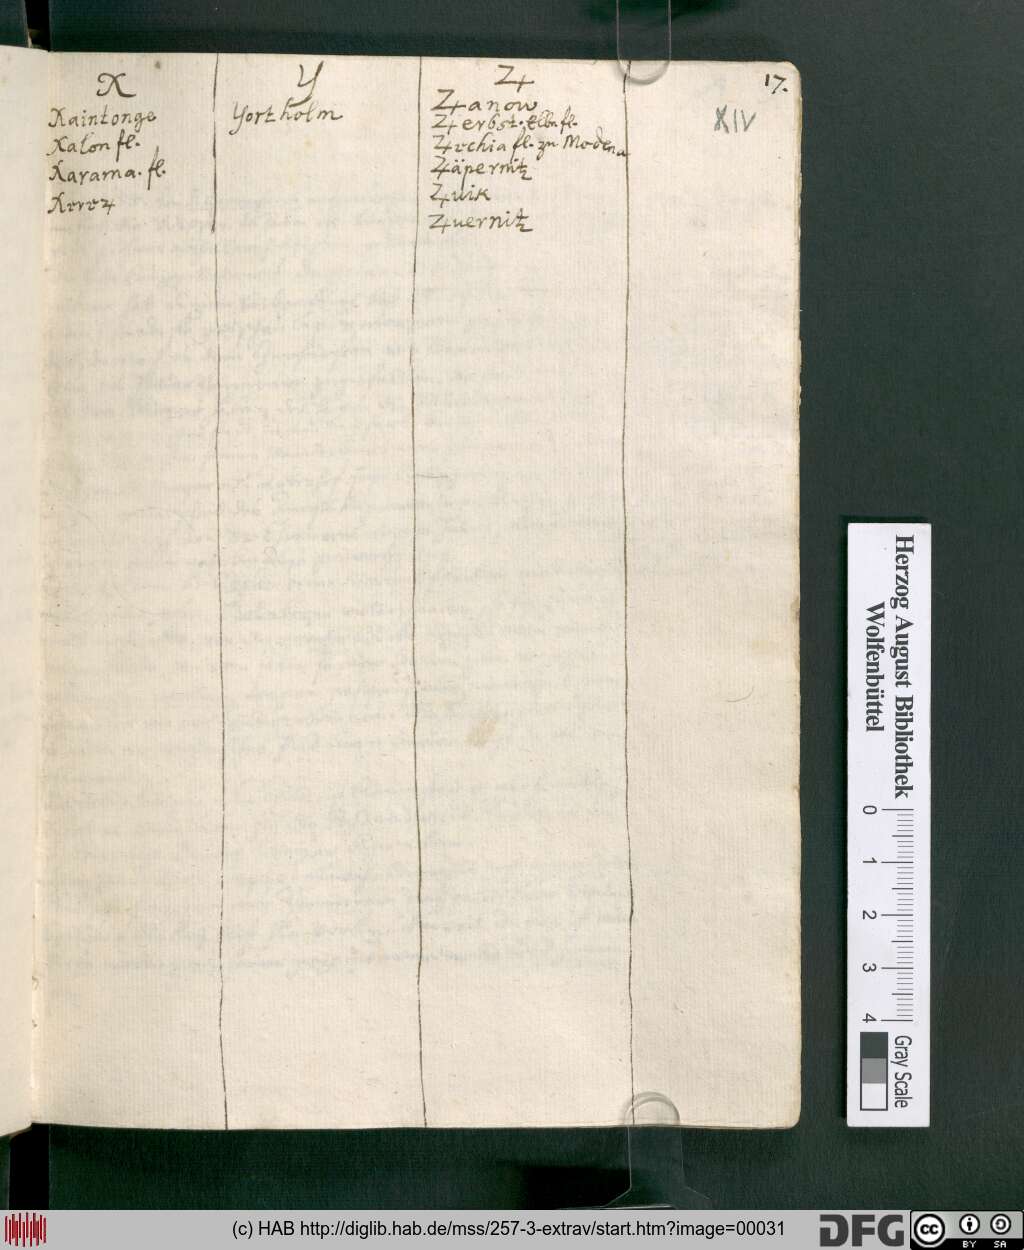 17.
XIV
X
Xaintonge
Xalon fl.
Xarama. fl.
Xerez
Y
Yortholm
Z
Zanow
Zerbst. Elbe fl.
Zechia fl. zu Modena
Zäpernitz
Zuik
Zuernitz
Herzog August Bibliothek
Wolfenbüttel
0 1 2 3 4
Gray Scale
(c) HAB http://diglib.hab.de/mss/257-3-extrav/start.htm?image=00031
DFG
cc BY SA